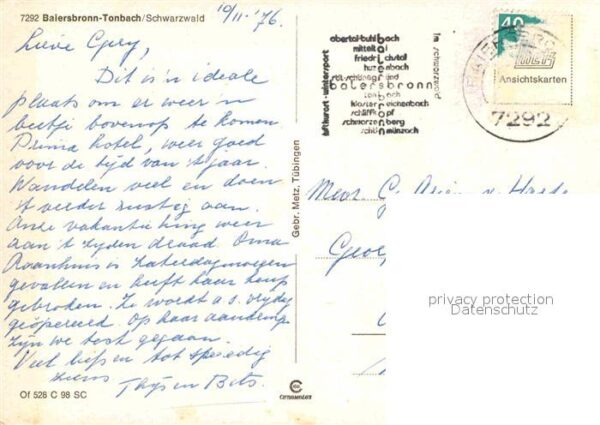 7292 Baiersbronn-Tonbach/Schwarzwald
10/11-'76.
Lieve Cary,
Dit is n ideale
plaats om er weer n
beetje bovenop te komen
Prima hotel, weer goed
voor de tijd van 't jaar.
Wandelen veel en doen
't verder rustig aan.
Onze vakantie hing weer
aan 't zijden draad Oma
is zaterdagmorgen
gevallen en heeft haar heup
gebroken. Ze wordt a.s. vrijdag
geopereerd. Op haar aandring
zijn we toch gegaan.
Veel liefs en tot spoedig
ziens
Thijs en Bets.
Of 528 C 98 SC
Gebr. Metz, Tübingen
luftkurort · wintersport
im schwarzwald
obertal-buhlbach
mitteltal
friedrichstal
huzenbach
röt-schönegründ
baiersbronn
tonbach
klosterreichenbach
schliffkopf
schwarzenberg
schönmünzach
40
Ansichtskarten
7292
Mevr.
privacy protection
Datenschutz